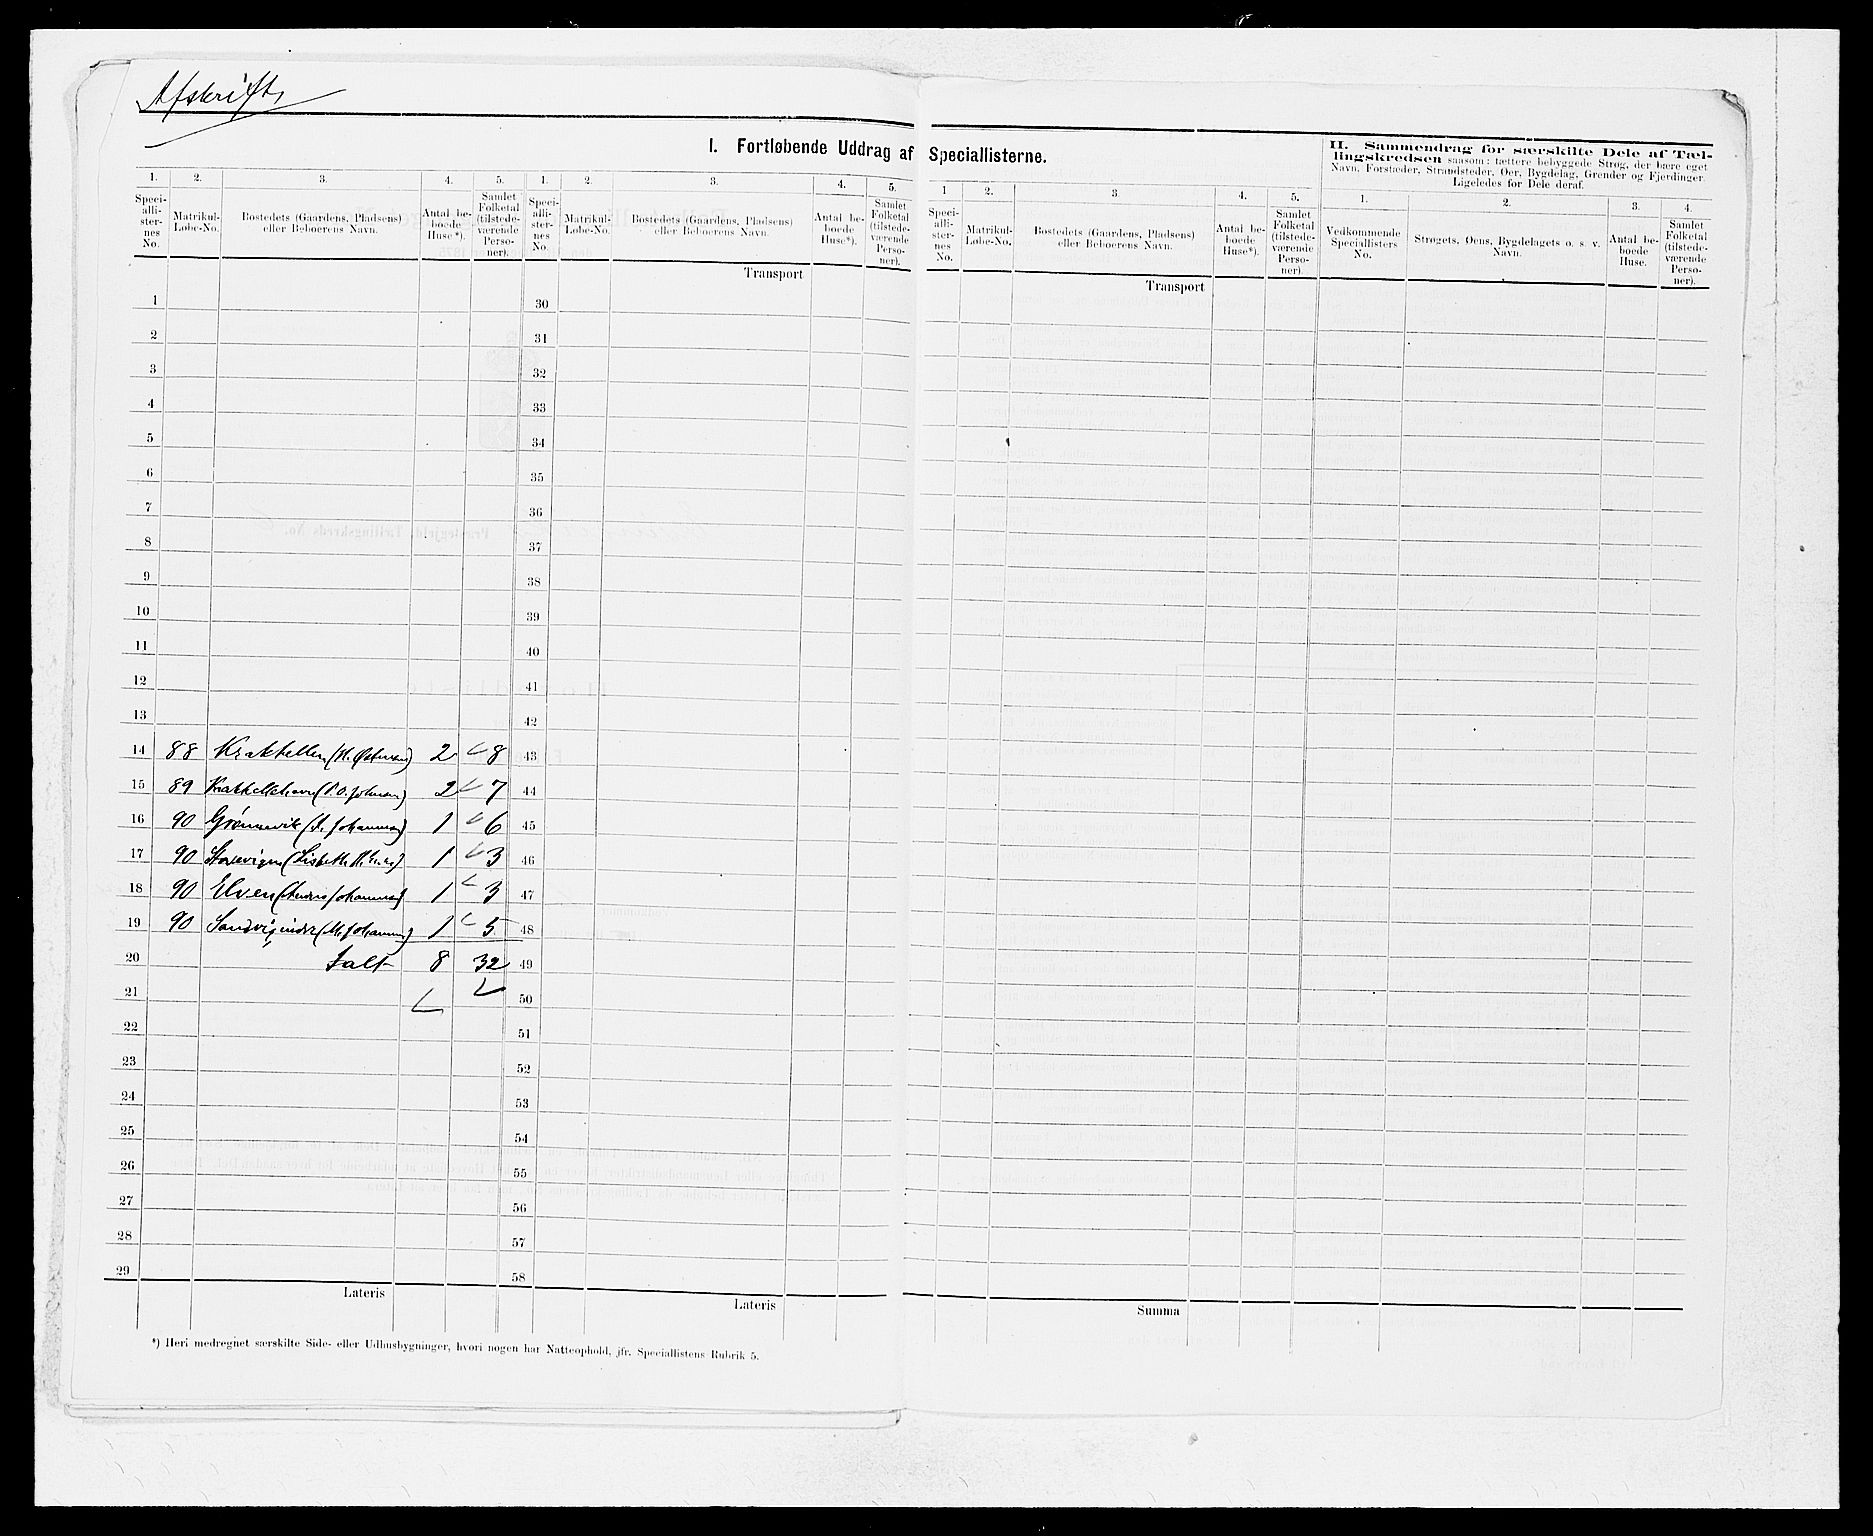 Afskrift
I. Fortløbende Uddrag af Speciallisterne.
II. Sammendrag for særskilte Dele af Tæl-
lingskredsen saasom: tættere bebyggede Strøg, der bære eget
Navn, Forstæder, Strandsteder, Øer, Bygdelag, Grender og Fjerdinger.
Ligeledes for Dele deraf.
1. 2. 3. 4. 5. 1. 2. 3. 4. 5.
Speci-
alli-
ster-
nes
No.
Matrikul-
Løbe-No.
Bostedets (Gaardens, Pladsens)
eller Beboerens Navn.
Antal be-
boede
Huse*).
Samlet
Folketal
(tilstede-
værende
Perso-
ner).
Speci-
alli-
ster-
nes
No.
Matrikul-
Løbe-No.
Bostedets (Gaardens, Pladsens)
eller Beboerens Navn.
Antal be-
boede
Huse*).
Samlet
Folketal
(tilstede-
værende
Perso-
ner).
1 2. 3 4. 5.
Speci-
alli-
ster-
nes
No.
Matrikul-
Løbe-No.
Bostedets (Gaardens, Pladsens)
eller Beboerens Navn.
Antal be-
boede
Huse*).
Samlet
Folketal
(tilstede-
værende
Perso-
ner).
1. 2. 3. 4.
Vedkommende
Speciallisters
No.
Strøgets, Øens, Bygdelagets o. s. v.
Navn.
Antal be-
boede
Huse.
Samlet
Folketal
(tilstede-
værende
Perso-
ner).
Transport
Transport
1 30
2 31
3 32
4 33
5 34
6 35
7 36
8 37
9 38
10 39
11 40
12 41
13 42
14 88 Krakhellen 2 8 43
15 89 2 7 44
16 90 Grønnevik (Johannes) 1 6 45
17 90 (Lisbeth) 1 3 46
18 90 Elven (Johannes) 1 3 47
19 90 1 5 48
20 Ialt 8 32 49
21 50
22 51
23 52
24 53
25 54
26 55
27 56
28 57
29 58
Lateris
Lateris
Summa
*) Heri medregnet særskilte Side- eller Udhusbygninger, hvori nogen har Natteophold, jfr. Speciallistens Rubrik 5.